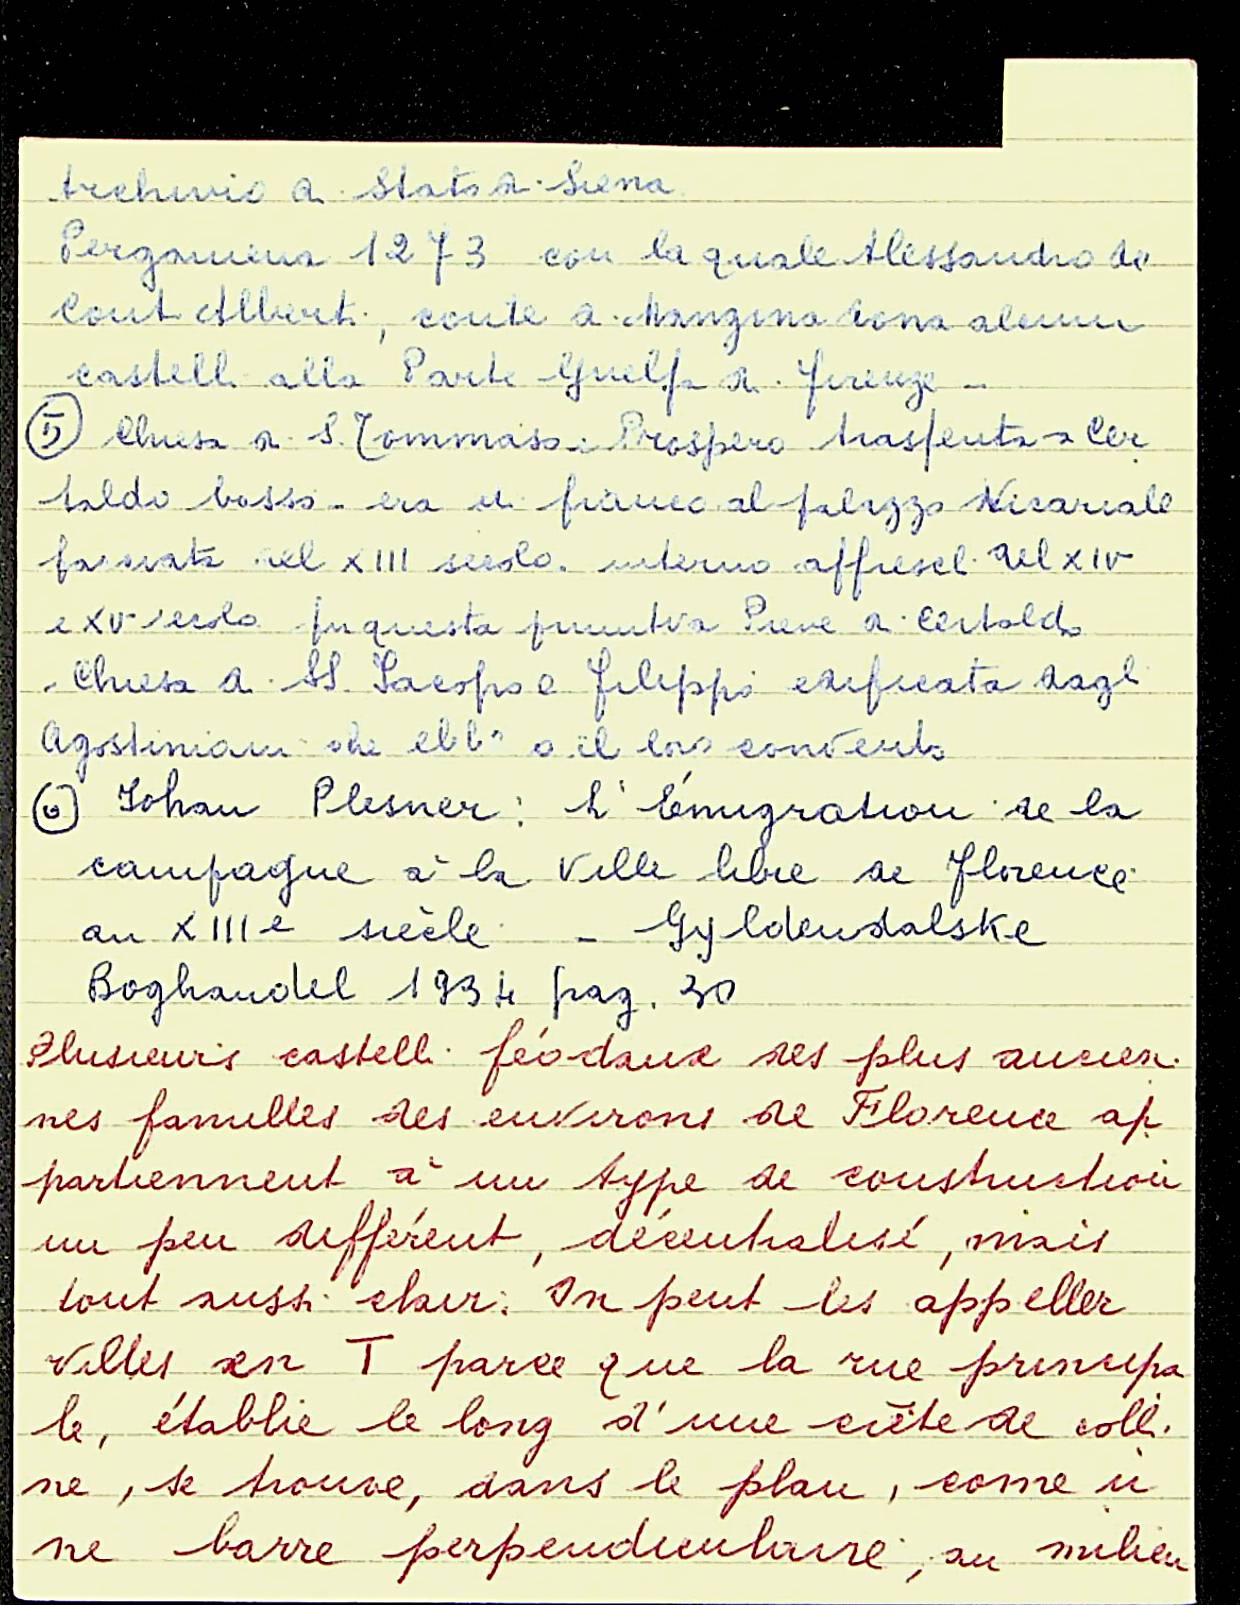 Archivio di Stato di Siena
Pergamena 1273 con la quale Alessandro dei
Conti Alberti, conte di Mangona dona alcuni
castelli alla Parte Guelfa di Firenze -
⑤ Chiesa di S. Tommaso e Prospero trasferita a Cer
taldo basso - era di fianco al palazzo Vicariale
facciata del XIII secolo. interno affreschi del XIV
e XV secolo fu questa primitiva Pieve di Certaldo
. Chiesa di SS. Jacopo e Filippo edificata dagli
Agostiniani che ebbero il loro convento
⑥ Johan Plesner: L'Émigration de la
campagne à la Ville libre de Florence
au XIIIe siècle - Gyldendalske
Boghandel 1934 pag. 30
Plusieurs castelli féodaux des plus ancien
nes familles des environs de Florence ap
partiennent à un type de construction
un peu différent, décentralisé, mais
tout aussi clair. On peut les appeller
villes en T parce que la rue principa
le, établie le long d'une crête de colli
ne, se trouve, dans le plan, come u
ne barre perpendiculaire, au milieu